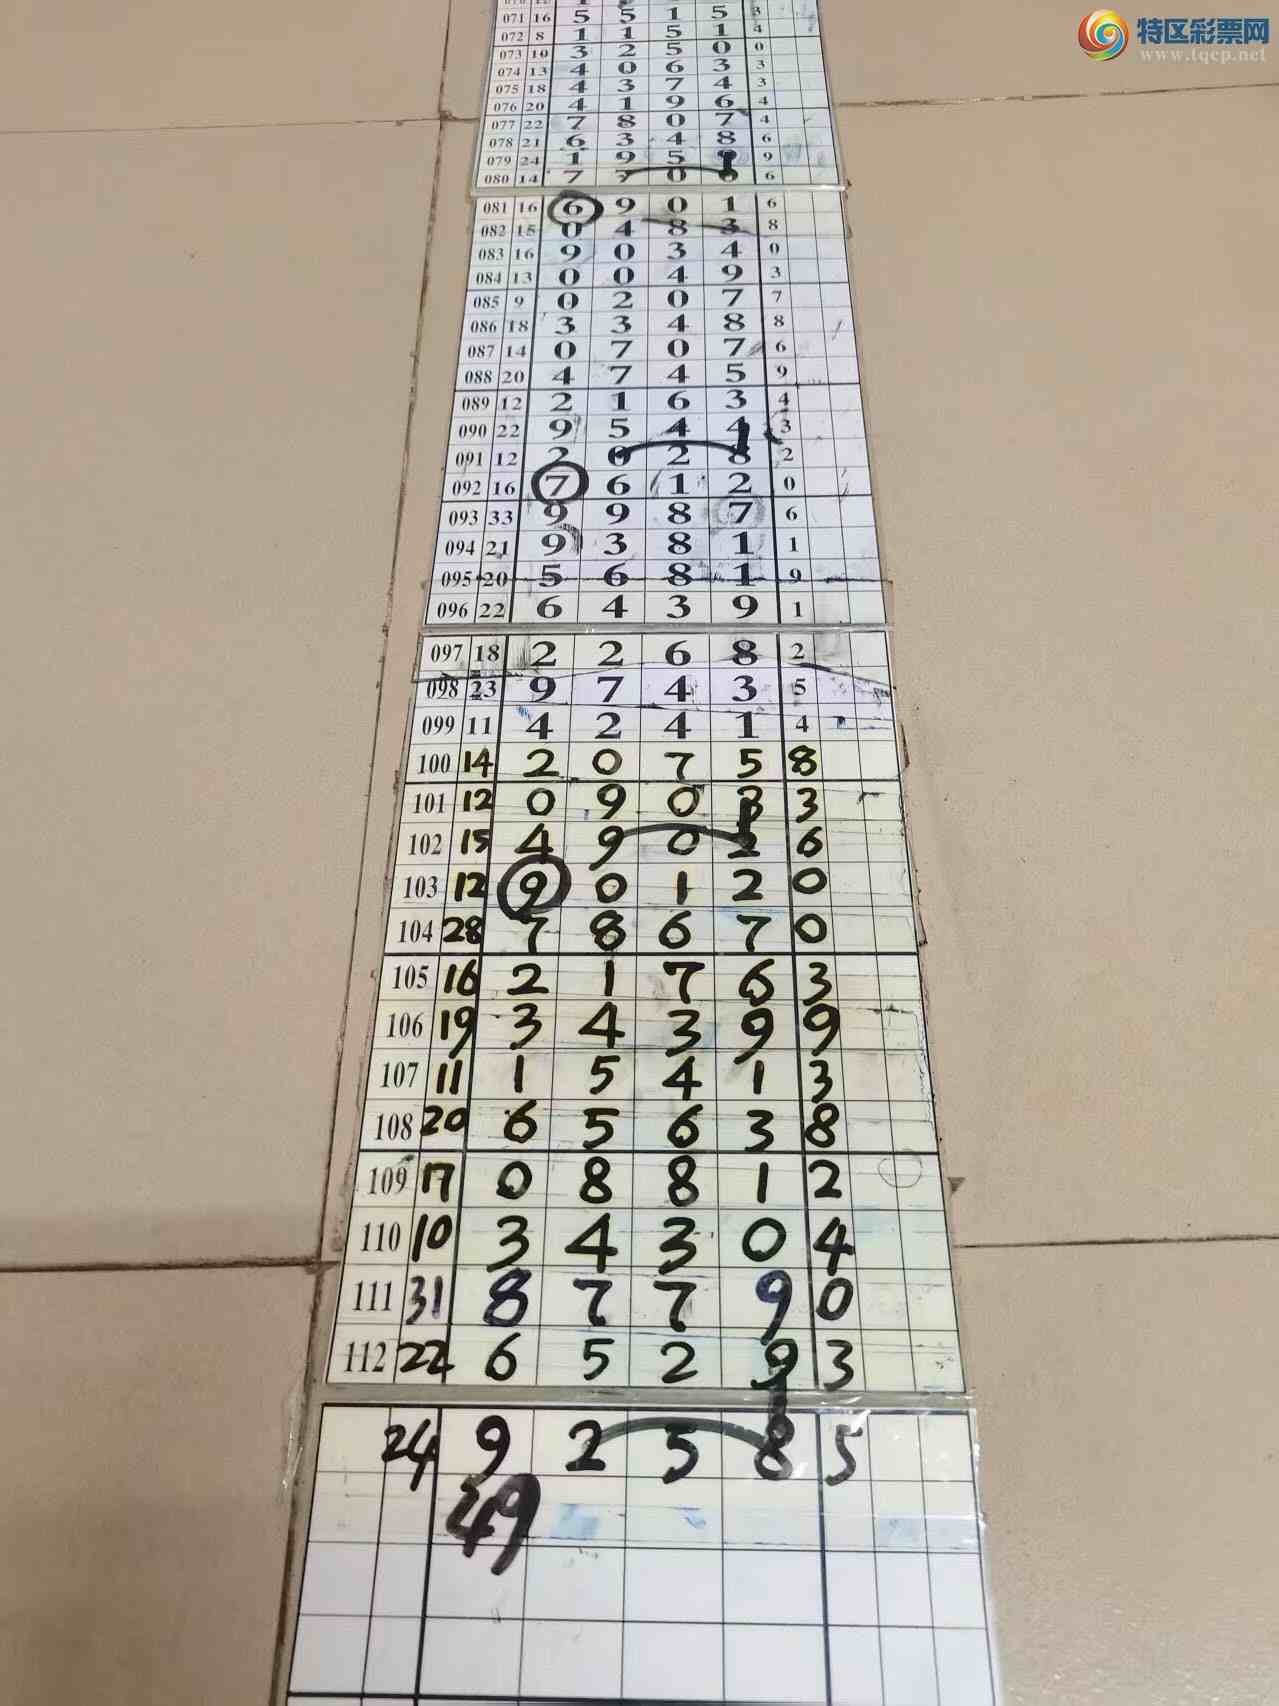 特区彩票网
www.tqcp.net
071 16 5 5 1 5 3
072 8 1 1 5 1 4
073 10 3 2 5 0 0
074 13 4 0 6 3 3
075 18 4 3 7 4 3
076 20 4 1 9 6 4
077 22 7 8 0 7 4
078 21 6 3 4 8 6
079 24 1 9 5 9 9
080 14 7 7 0 0 6
081 16 6 9 0 1 6
082 15 0 4 8 3 8
083 16 9 0 3 4 0
084 13 0 0 4 9 3
085 9 0 2 0 7 7
086 18 3 3 4 8 8
087 14 0 7 0 7 6
088 20 4 7 4 5 9
089 12 2 1 6 3 4
090 22 9 5 4 4 3
091 12 2 0 2 8 2
092 16 7 6 1 2 0
093 33 9 9 8 7 6
094 21 9 3 8 1 1
095 20 5 6 8 1 9
096 22 6 4 3 9 1
097 18 2 2 6 8 2
098 23 9 7 4 3 5
099 11 4 2 4 1 4
100 14 2 0 7 5 8
101 12 0 9 0 3 3
102 15 4 9 0 2 6
103 12 9 0 1 2 0
104 28 7 8 6 7 0
105 16 2 1 7 6 3
106 19 3 4 3 9 9
107 11 1 5 4 1 3
108 20 6 5 6 3 8
109 17 0 8 8 1 2
110 10 3 4 3 0 4
111 31 8 7 7 9 0
112 22 6 5 2 9 3
24 9 2 5 8 5
49